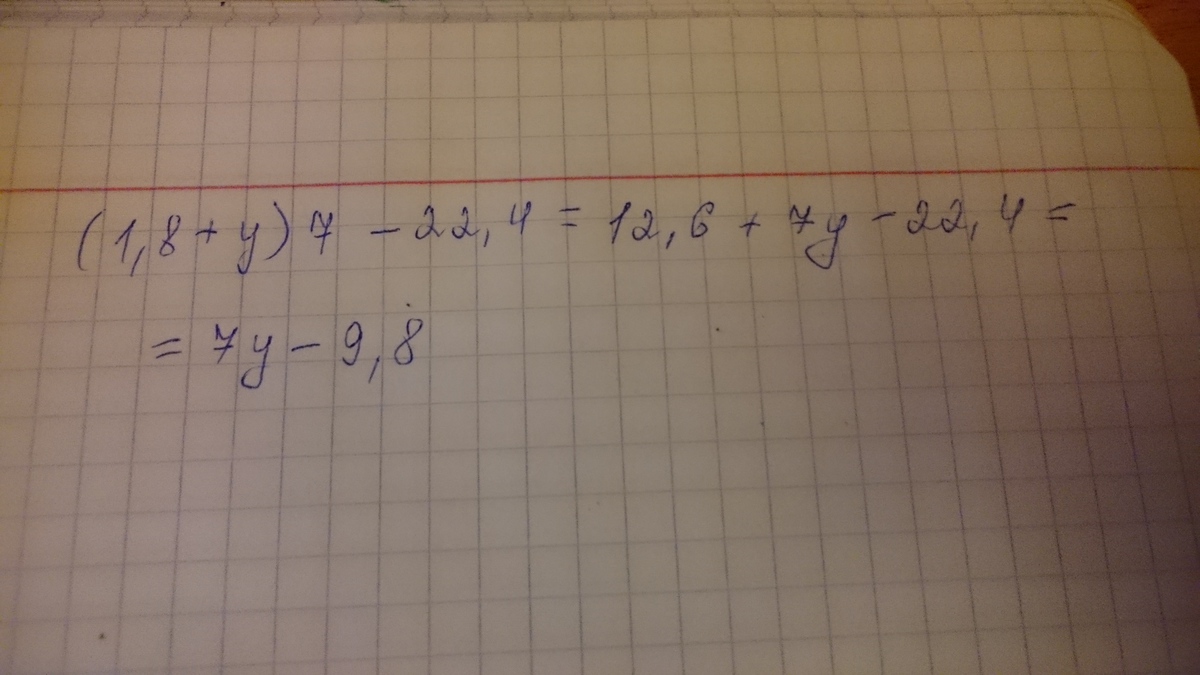 (1,8+y)7 -22,4 = 12,6 + 7y -22,4 =
= 7y - 9,8